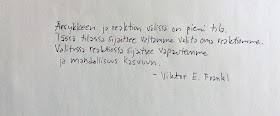 Ärsykkeen ja reaktion välissä on pieni tila.
Tässä tilassa sijaitsee valtamme valita oma reaktiomme.
Valitussa reaktiossa sijaitsee vapautemme
ja mahdollisuus kasvuun.
- Viktor E. Frankl